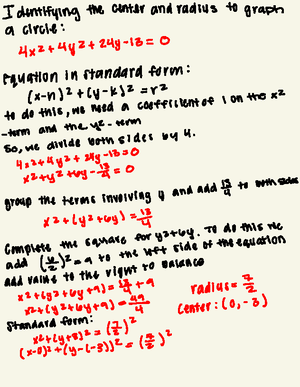 Identifying the center and radius to graph
a circle:
4x² + 4y² + 24y - 13 = 0
Equation in standard form:
(x-h)² + (y-k)² = r²
to do this, we need a coefficient of 1 on the x²
-term and the y² - term
So, we divide both sides by 4.
4x² + 4y² + 24y - 13 = 0
x² + y² + 6y - 13/4 = 0
group the terms involving y and add 13/4 to both sides
x² + (y² + 6y) = 13/4
Complete the square for y² + 6y. To do this we
add (6/2)² = 9 to the left side of the equation
add value to the right to balance
x² + (y² + 6y + 9) = 13/4 + 9
x² + (y² + 6y + 9) = 49/4
Standard form:
x² + (y+3)² = (7/2)²
(x-0)² + (y-(-3))² = (7/2)²
radius = 7/2
center: (0, -3)